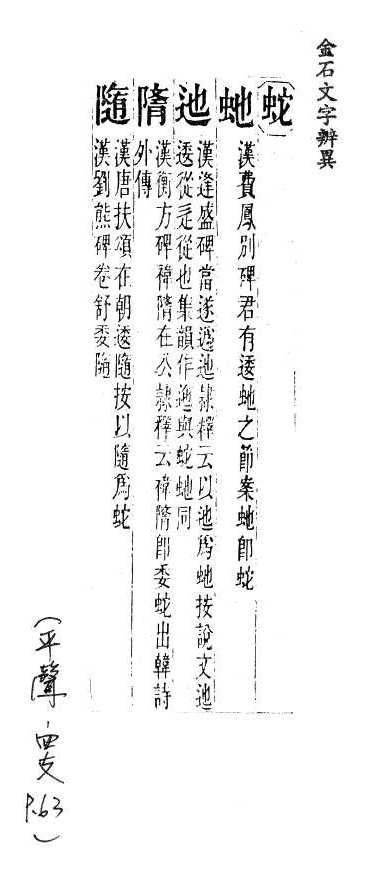 金石文字辨異
蛇
虵
漢費鳳別碑君有逶虵之節案虵即蛇
迆
漢逢盛碑當遂逶迆隸釋云以迆爲虵按說文迆
逶從辵從也集韻作迤與蛇虵同
隋
漢衡方碑褘隋在公隸釋云褘隋即委蛇出韓詩
外傳
隨
漢唐扶頌在朝逶隨按以隨爲蛇
漢劉熊碑卷舒委隨
(平聲·四支 P.63)